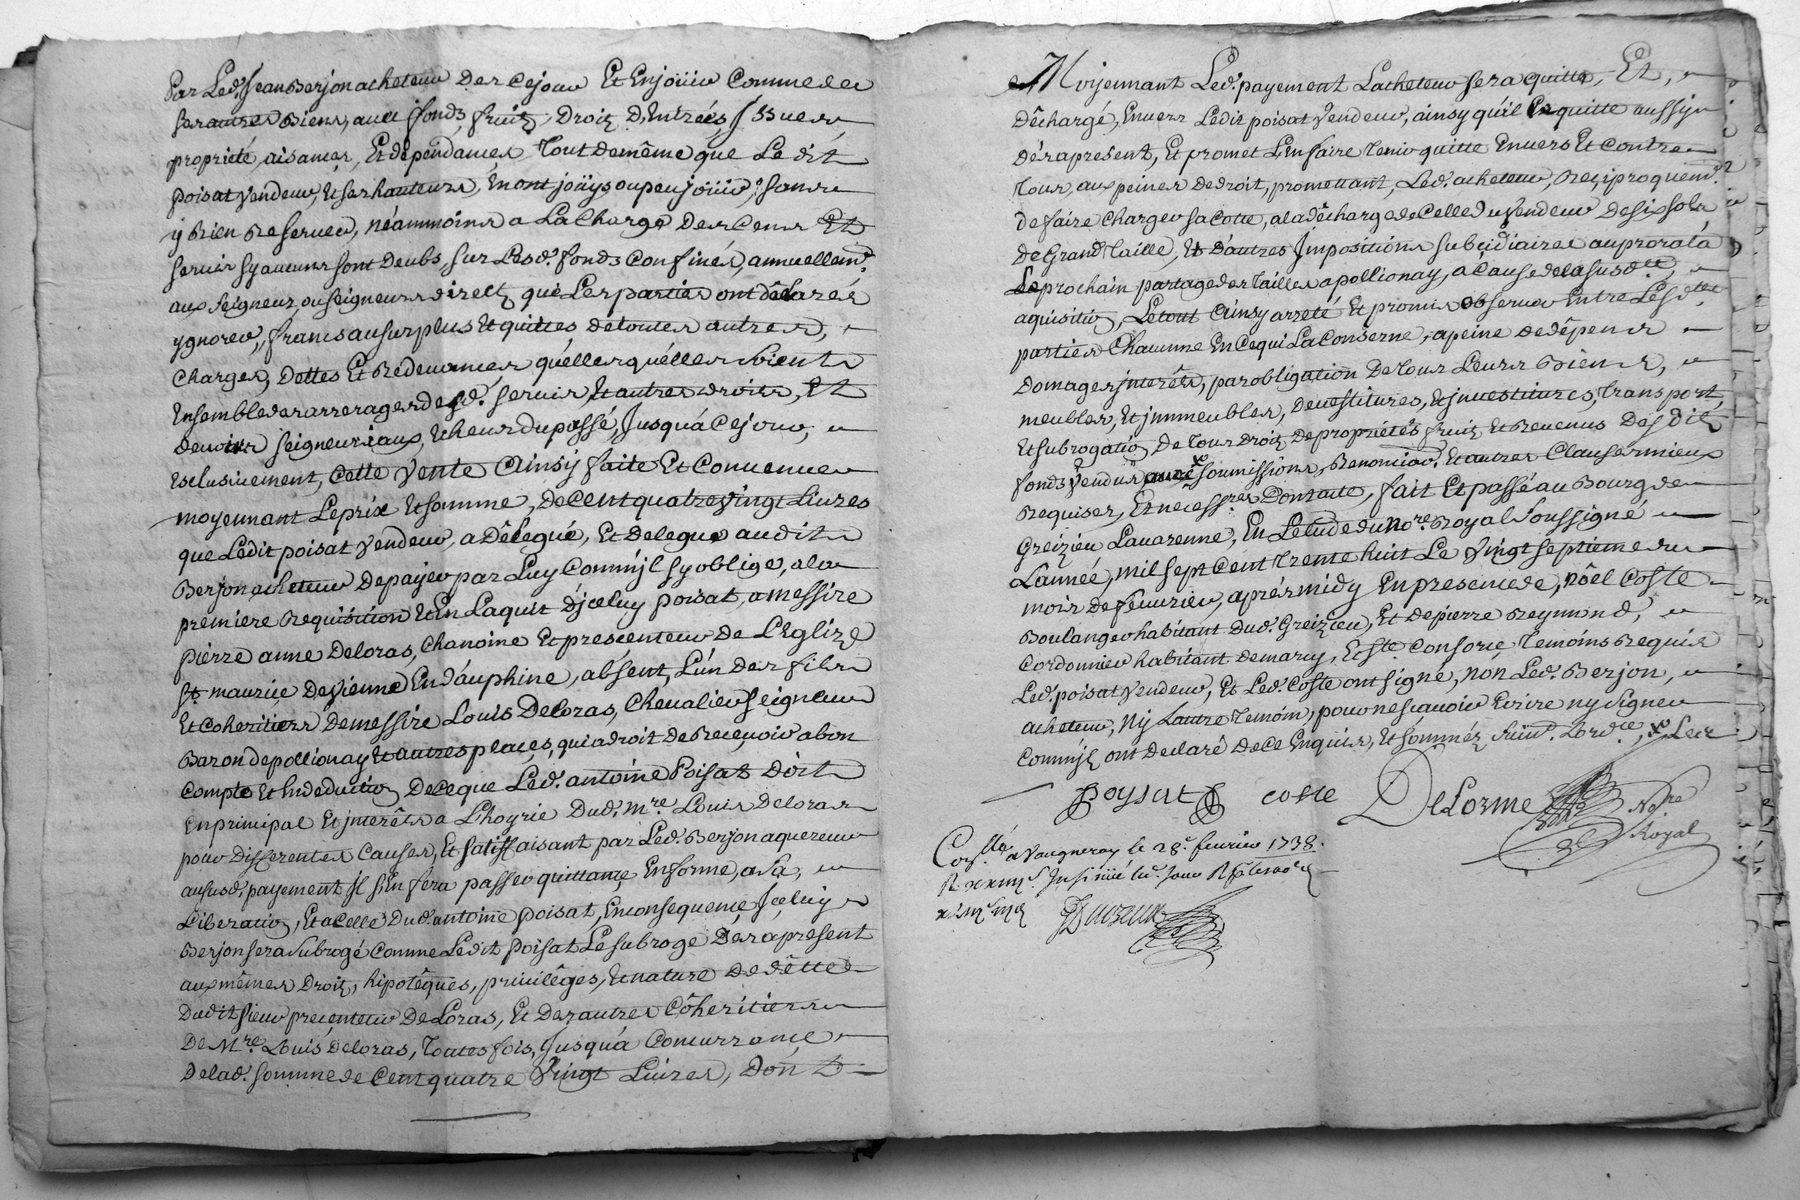 Par Led. Jean Berjon acheteur Des cejour Et Enjoüir Comme de
ses autres Biens, avec fonds, fruits, Droits D'Entrées, Issues
propriété, aisances, Et dépendances Tout de même que Le dit
poisat Vendeur, Et ses hauteurs, En ont joüy sou peu joüir, sans
y Rien Reserver, néammoins a La Charge Des Cens Et
servis sy aucuns sont Deubs, sur Lesd. fonds Confinés, annuellemt.
aux seigneur, ou seigneurs directs que Les parties ont déclarés
ygnorer, francs au surplus Et quittes de toutes autres,
Charges, Dettes Et Redevances quélles quélles soient
Ensemble des arrerages desd. servis, Et autres droits, Et
devoirs seigneuriaux, Echeus du passé, Jusquá Cejour,
Esclusivement, Cette Vente Ainsy faite Et Convenue
moyennant Le prix Et somme, De Cent quatre vingt Livres
que Ledit poisat Vendeur, a Délegué, Et Delegue audit
Berjon acheteur De payer par Luy Comm'jl sy oblige, ala
premiere Requisition Et En Laquit D'jceluy poisat, a messire
pierre anne Deloras, Chanoine Et prescenteur De L'Eglize
St. maurice De Vienne En Dáuphine, absent, L'un Des fils
Et Coheritiers De messire Louis Deloras, Chevalier seigneur
Baron de pollionay Et autres places, qui a droit de Recevoir a bon
Compte Et En deduction De ce que Led. antoine Poisat Doit
En principal Et jnterêts a L'hoyrie Dud. Mre. Louis Deloras
pour Differentes Causes, Et satisfaisant par Led. Berjon aquereur
ausd. payement Jl s'En fera passer quittance En forme, a sa,
Liberation, Et acelle Dud. antoine poisat, En consequence Jceluy
Berjon sera subrogé Comme Ledit poisat Le subroge Des apresent
aux mêmes Droits, hipotêques, privilêges, Et nature De dêtte
Dudit sieur precenteur De Loras, Et Des autres Côheritiers
De Mre. Louis Deloras, Toutes fois, Jusquá Concurrance
Delad. somme de Cent quatre Vingt Livres, Dont
Moijennant Led. payement Lacheteur sera quitte, Et,
Dêchargé, Envers Ledit poisat Vendeur, ainsy qu'il Le quitte aussy
dés apresent, Et promet L'En faire Tenir quitte Envers Et Contre
Tous, aux peines De droit, promettant, Led. acheteur, Reciproquemt.
de faire Charger sa Cotte, ala dêcharge de Celle du Vendeur De six sols
de Grand Taille, Et D'autres Jmpositions subcidiaires au prorata
Le prochain partage des Tailles a pollionay, a Cause de la susd.tte,
aquisition, Le tout Ainsy arreté Et promis observer Entre Lesd.ttes
parties Chacune En Ce qui La Conserne, a peine de dêpens
Domages jnterêts, par obligation De Tous Leurs Biens,
meubles, Et jmmeubles, Devestitures, Et jnvestitures, Transport,
Et subrogation De Tous Droits De propriétés fruits Et Revenus Desdits
fonds Vendus soumissions, Renonciaõn. Et autres Clauses mieux
Requises, Et nécessres. Dont acte, fait Et passé au Bourg de
Greizieu Lavarenne, En L'etude du Nore. Royal soussigné
L'année, mil sept Cent Trente huit Le Vingt septieme du
mois De fevrier, aprés midy En presence de, nôel Coste
Boulanger habitant Dud. Greizieu, Et De pierre Reymond,
Cordonnier habitant de marcy, Et Ste. Consorce, Temoins Requis
Led. poisat Vendeur, Et Led. Coste ont signé, nón Led. Berjon,
acheteur, Nij Lautre Temoin, pour ne sçavoir Ecrire ny signer
Comm'jls ont Declaré De Ce Enquis, Et sómmés
Poysat Coste DeLorme Nore.
Royal
Conllé. a Vaugneray le 28e. fevrier 1738.